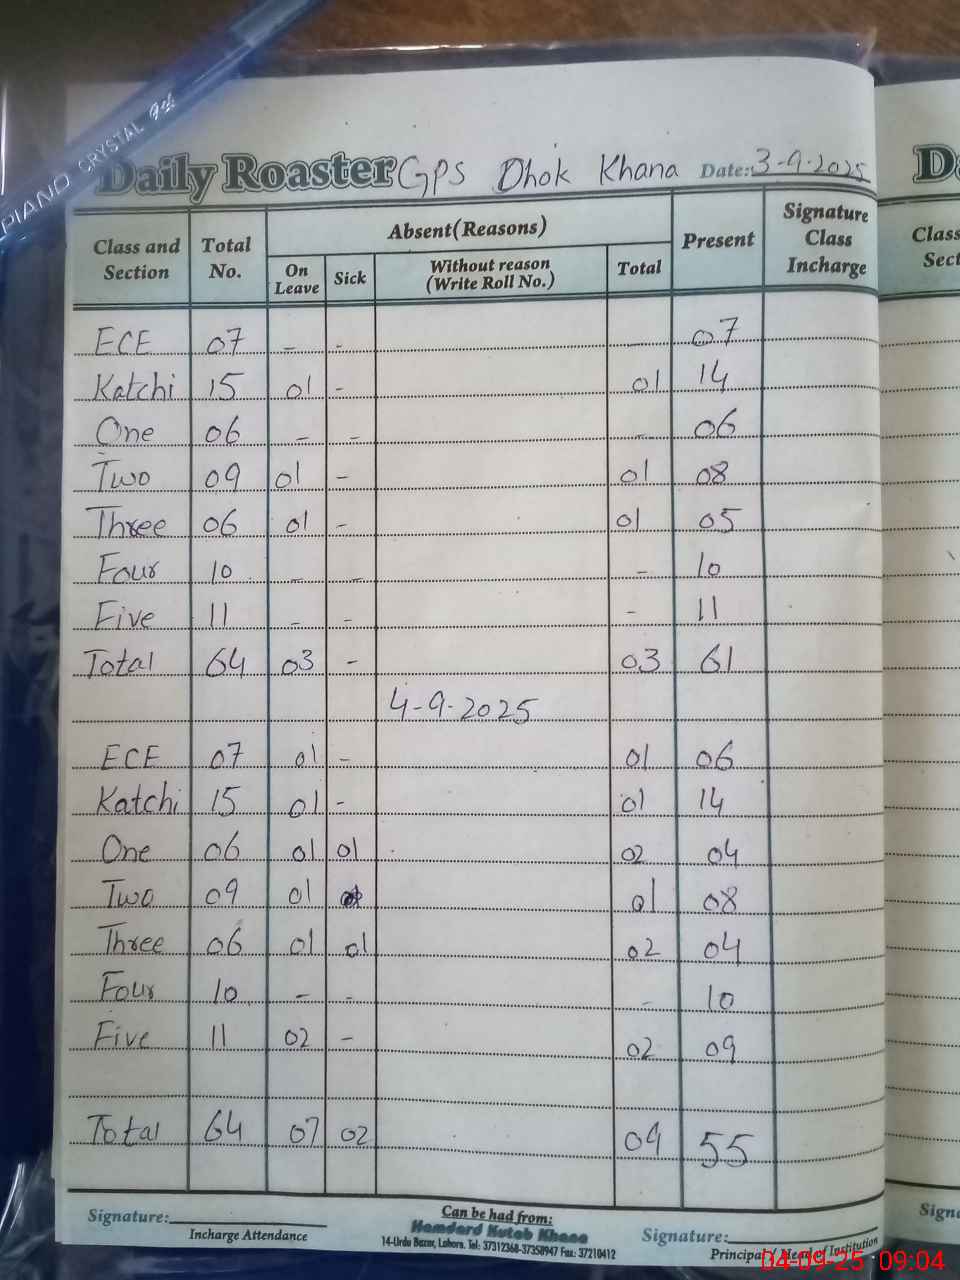 PIANO CRYSTAL gel
Daily Roaster GPS Dhok Khana Date: 3-9-2025
Class and Section Total No. Absent(Reasons) Present Signature Class Incharge
On Leave Sick Without reason (Write Roll No.) Total
ECE 07 - - - 07
Katchi 15 01 - 01 14
One 06 - - - 06
Two 09 01 - 01 08
Three 06 01 - 01 05
Four 10 - - - 10
Five 11 - - - 11
Total 64 03 - 03 61
4-9-2025
ECE 07 01 - 01 06
Katchi 15 01 - 01 14
One 06 01 01 02 04
Two 09 01 01 08
Three 06 01 01 02 04
Four 10 - - - 10
Five 11 02 - 02 09
Total 64 07 02 09 55
Signature: Can be had from: Signature:
Incharge Attendance Hamdard Kutab Khana Principal / Head of Institution
14-Urdu Bazar, Lahore. Tel: 37312368-37358947 Fax: 37210412
04-09-25 09:04
Da
Class
Sect
Signa